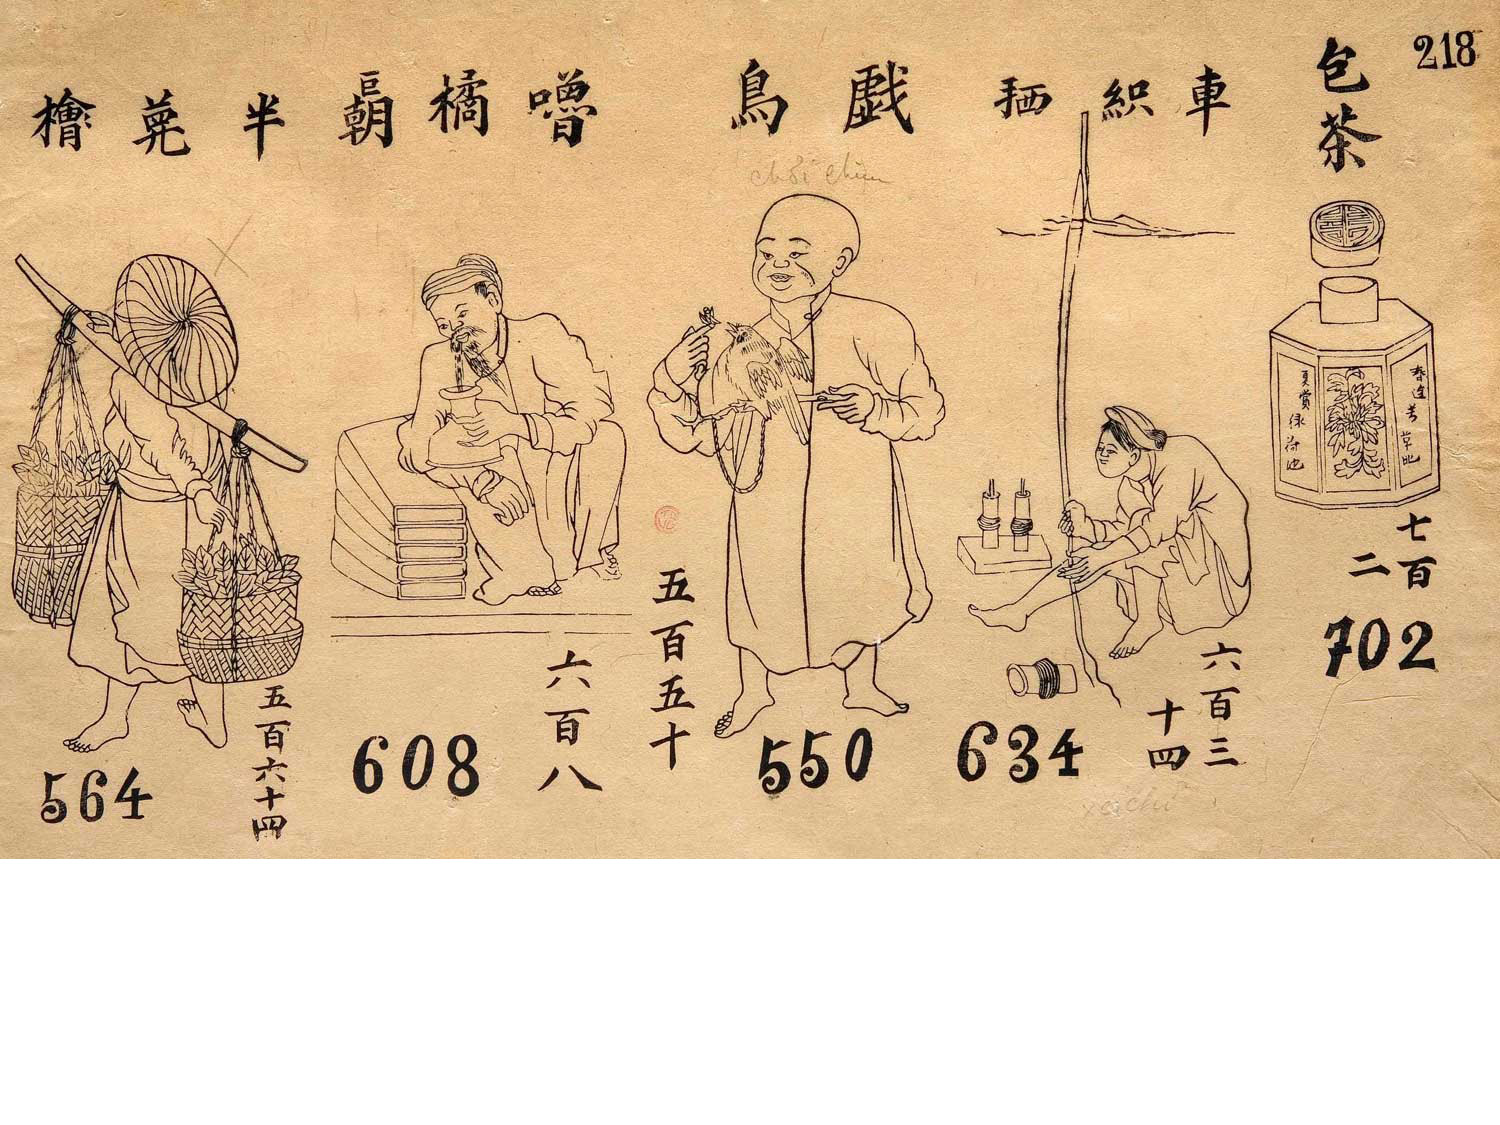 218
包茶
車織
戯鳥
噜橘
半 檜
chơi chim
春遊芳草地
夏賞绿荷池
七百二
702
六百三十四
634
五百五十
550
六百八
608
五百六十四
564
xe chỉ